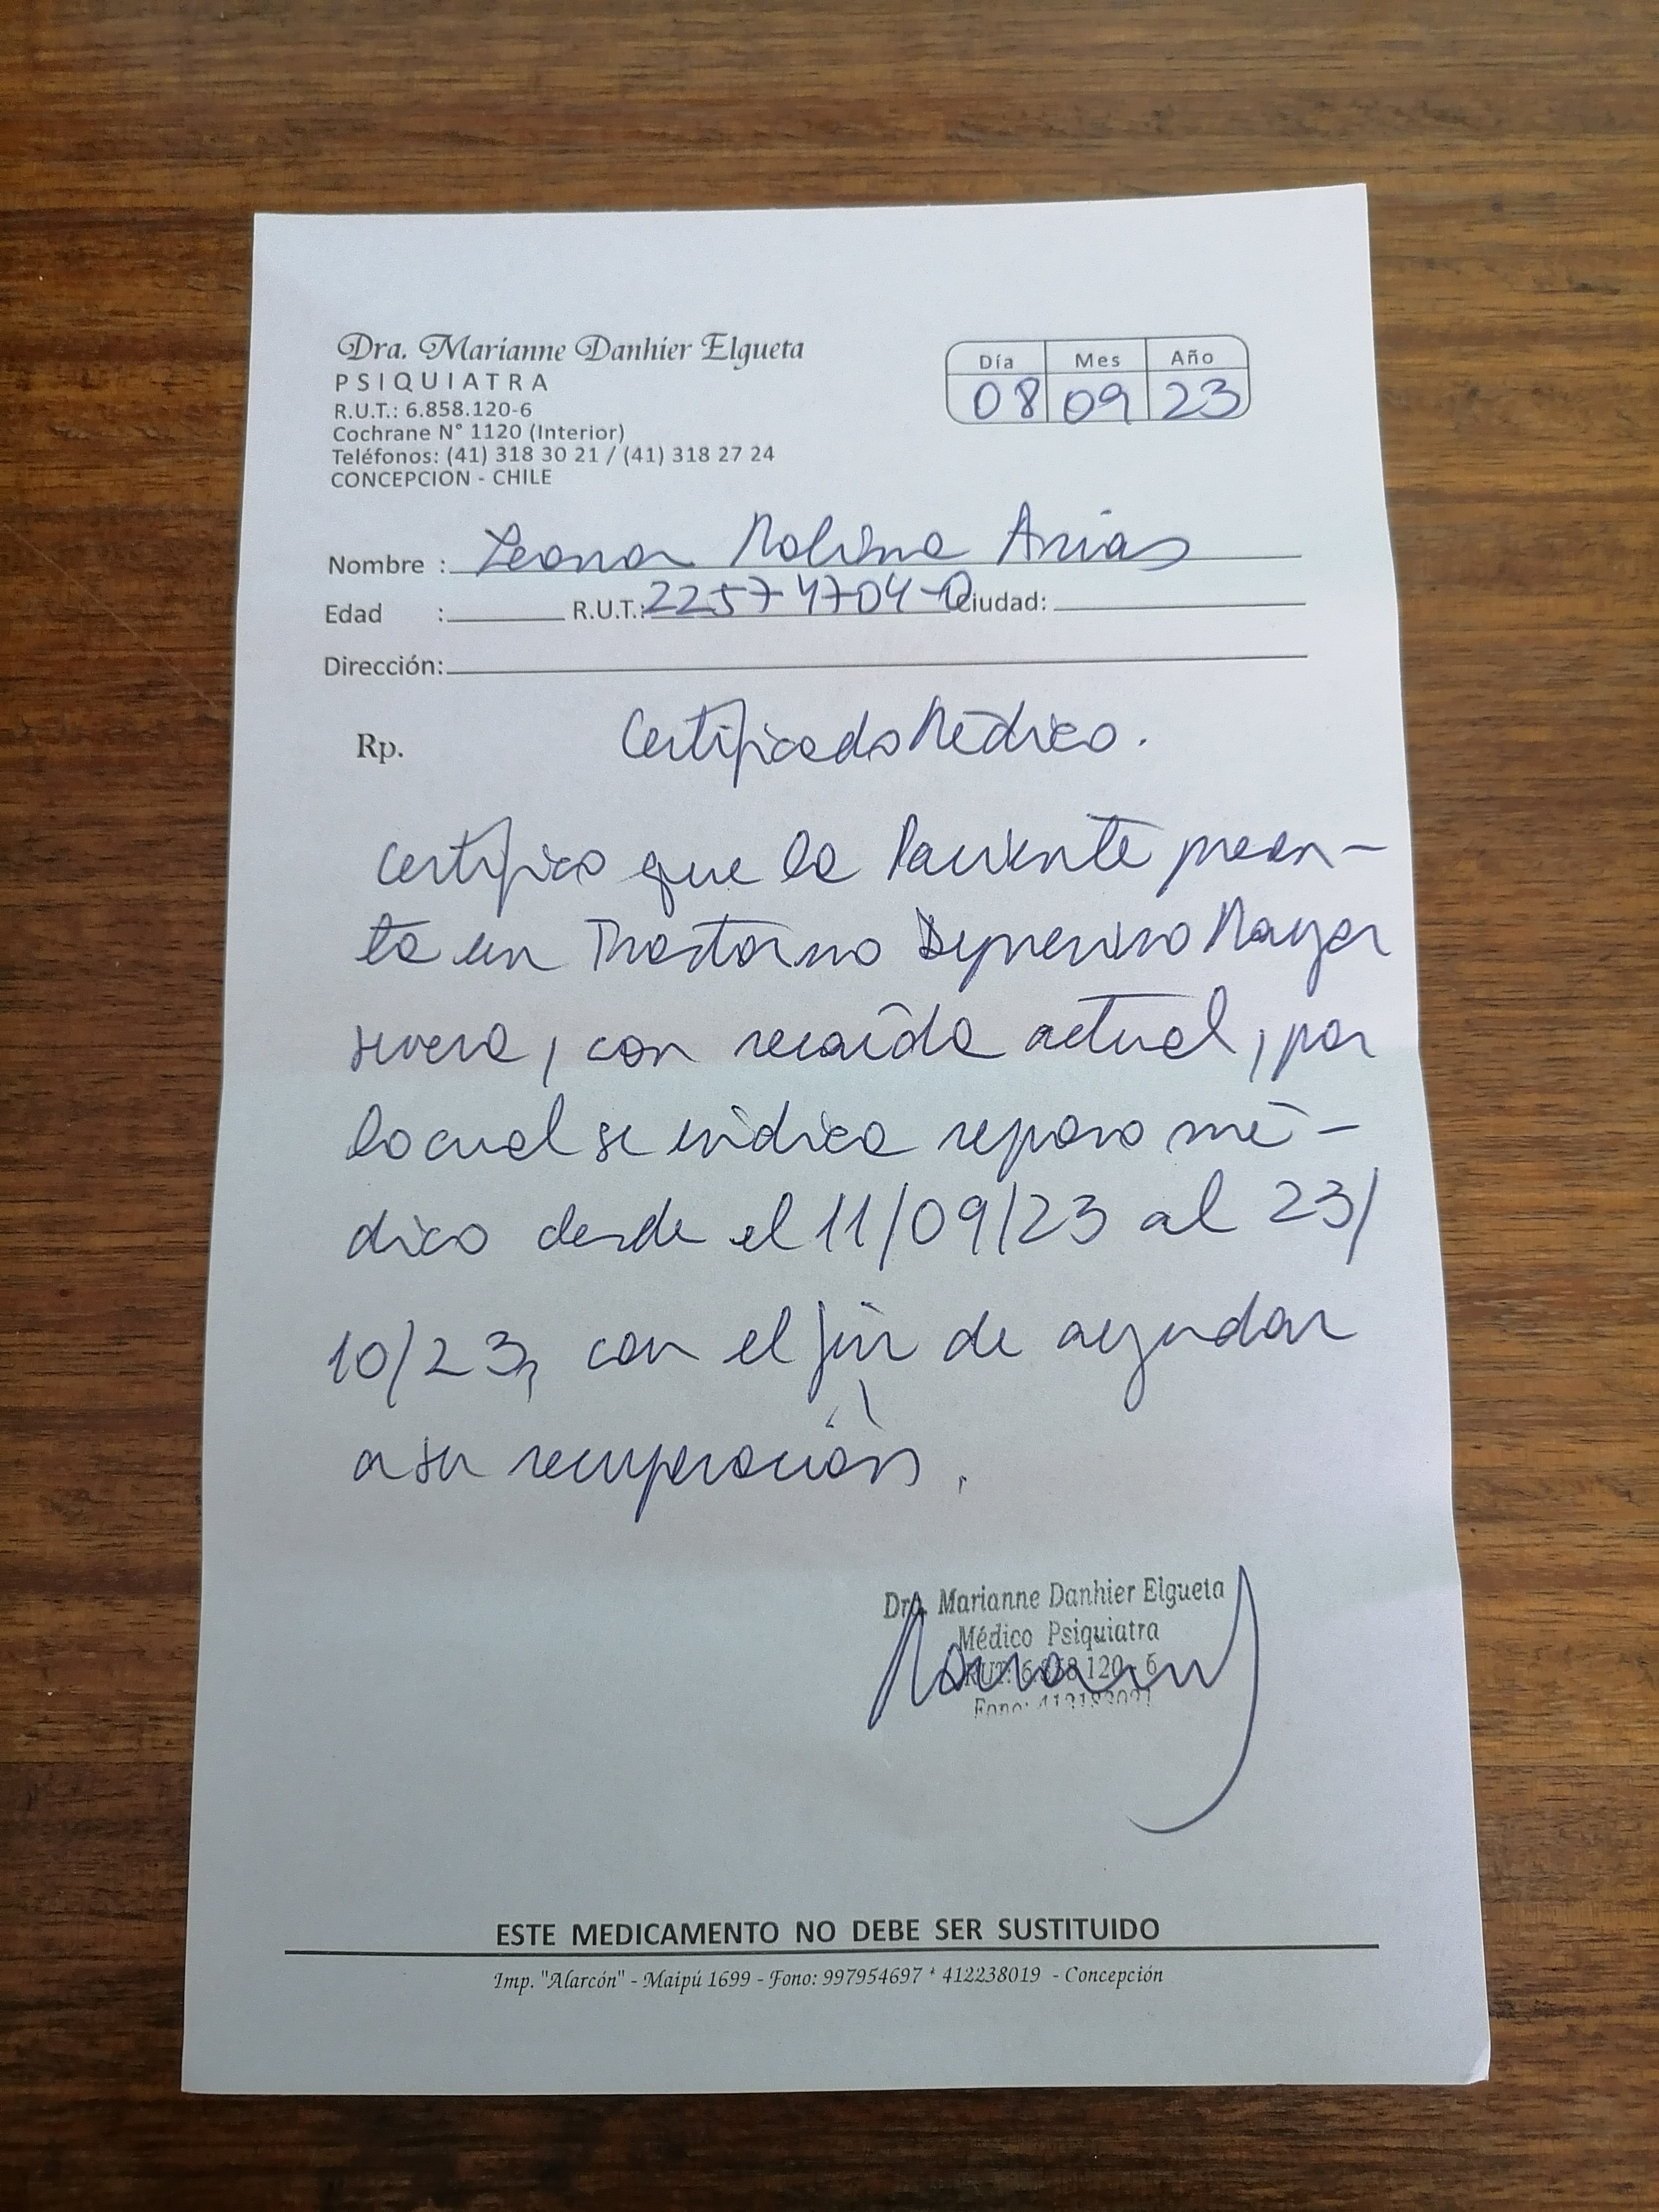 Dra. Marianne Danhier Elgueta
PSIQUIATRA
R.U.T.: 6.858.120-6
Cochrane N° 1120 (Interior)
Teléfonos: (41) 318 30 21 / (41) 318 27 24
CONCEPCION - CHILE
Día Mes Año
08 09 23
Nombre : Leonor Molina Arias
Edad : R.U.T.: 22574704-0 Ciudad:
Dirección:
Rp. Certificado Médico.
Certifico que la Paciente presen-
ta un Trastorno Depresivo Mayor
severo, con recaída actual, por
lo cual se indica reposo mé-
dico desde el 11/09/23 al 23/
10/23, con el fin de ayudar
a su recuperación.
Dra. Marianne Danhier Elgueta
Médico Psiquiatra
RUT: 6.858.120-6
Fono: 413183021
ESTE MEDICAMENTO NO DEBE SER SUSTITUIDO
Imp. "Alarcón" - Maipú 1699 - Fono: 997954697 * 412238019 - Concepción